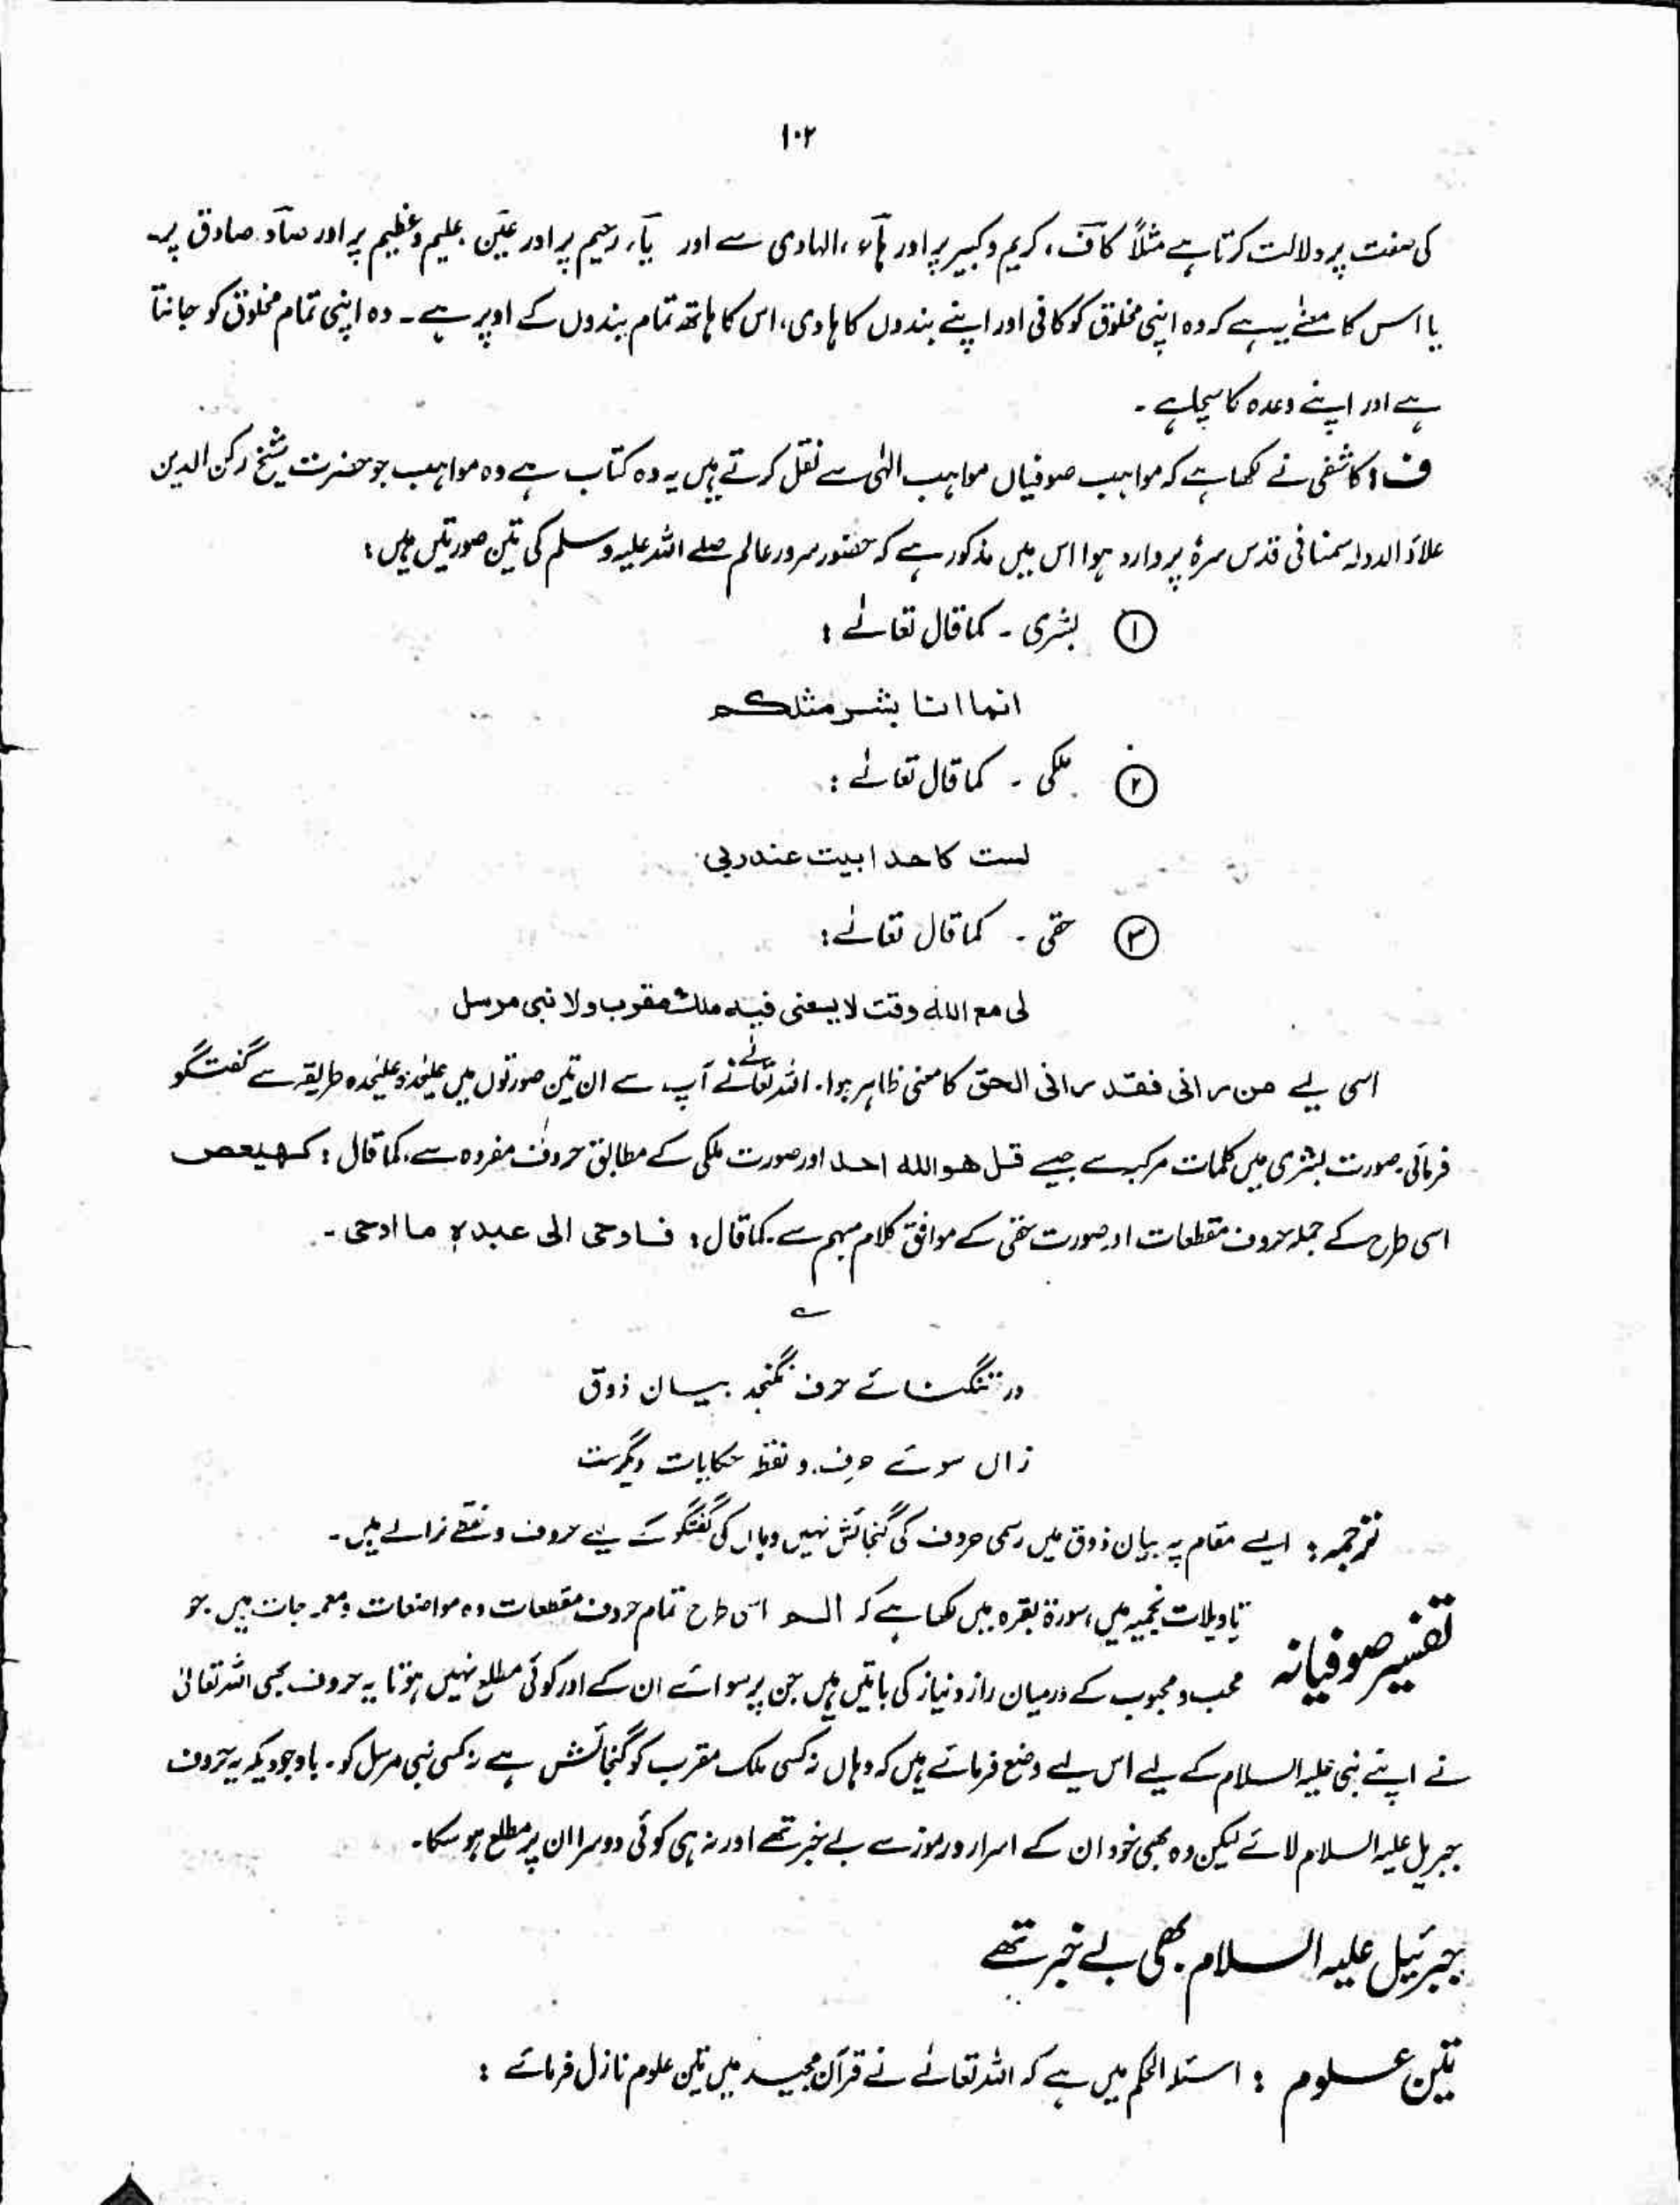 ۱۰۲
کی صفت پر دلالت کرتا ہے مثلاً کاف، کریم و کبیر پر اور ہاء، الہادی سے اور یآء رحیم پر اور عین، علیم و عظیم پر اور صآد صادق پر۔
یا اس کا معنے یہ ہے کہ وہ اپنی مخلوق کو کافی اور اپنے بندوں کا ہادی، اس کا ہاتھ تمام بندوں کے اوپر ہے۔ وہ اپنی تمام مخلوق کو جانتا
ہے اور اپنے وعدہ کا سچا ہے۔
ف : کاشفی نے لکھا ہے کہ مواہب صوفیاں مواہب الٰہی سے نقل کرتے ہیں یہ وہ کتاب ہے وہ مواہب جو حضرت شیخ رکن الدین
علاؤ الدولہ سمنانی قدس سرہٗ پر وارد ہوا اس میں مذکور ہے کہ حضور سرور عالم صلے اللہ علیہ وسلم کی تین صورتیں ہیں :
① بشری ۔ کما قال تعالےٰ :
انما انا بشر مثلکم
② ملکی ۔ کما قال تعالےٰ :
لست کاحد ابیت عند ربی
③ حقی ۔ کما قال تعالےٰ :
لی مع اللہ وقت لا یسعنی فیہ ملک مقرب ولا نبی مرسل
اسی لیے من رانی فقد رانی الحق کا معنی ظاہر ہوا۔ اللہ تعالےٰ نے آپ سے ان تین صورتوں میں علیٰحدہ علیٰحدہ طریقہ سے گفتگو
فرمائی۔ صورت بشری میں کلمات مرکبہ سے جیسے قل ھو اللہ احد اور صورت ملکی کے مطابق حروف مفردہ سے۔ کما قال : کھیعص
اسی طرح کے جملہ حروف مقطعات اور صورت حقی کے موافق کلام مبہم سے۔ کما قال : فاوحی الی عبدہ ما اوحی ۔
؎
در تنگنائے حرف نگنجد بیان ذوق
زاں سوئے حرف و نقطہ حکایات دیگرست
ترجمہ : ایسے مقام پہ بیان ذوق میں رسمی حروف کی گنجائش نہیں وہاں کی گفتگو کے لیے حروف و نقطے نرالے ہیں۔
تفسیر صوفیانہ تاویلات نجمیہ میں، سورۃ بقرہ میں لکھا ہے کہ الم اسی طرح تمام حروف مقطعات وہ مواضعات و معمہ جات ہیں جو
محب و محبوب کے درمیان راز و نیاز کی باتیں ہیں جن پر سوائے ان کے اور کوئی مطلع نہیں ہوتا یہ حروف بھی اللہ تعالیٰ
نے اپنے نبی علیہ السلام کے لیے اس لیے وضع فرمائے ہیں کہ وہاں نہ کسی ملک مقرب کو گنجائش ہے نہ کسی نبی مرسل کو۔ باوجودیکہ یہ حروف
جبریل علیہ السلام لائے لیکن وہ بھی خود ان کے اسرار و رموز سے بے خبر تھے اور نہ ہی کوئی دوسرا ان پر مطلع ہو سکا۔
جبرئیل علیہ السلام بھی بے خبر تھے
تین علوم : اسئلۃ الحکم میں ہے کہ اللہ تعالےٰ نے قرآن مجید میں تین علوم نازل فرمائے :